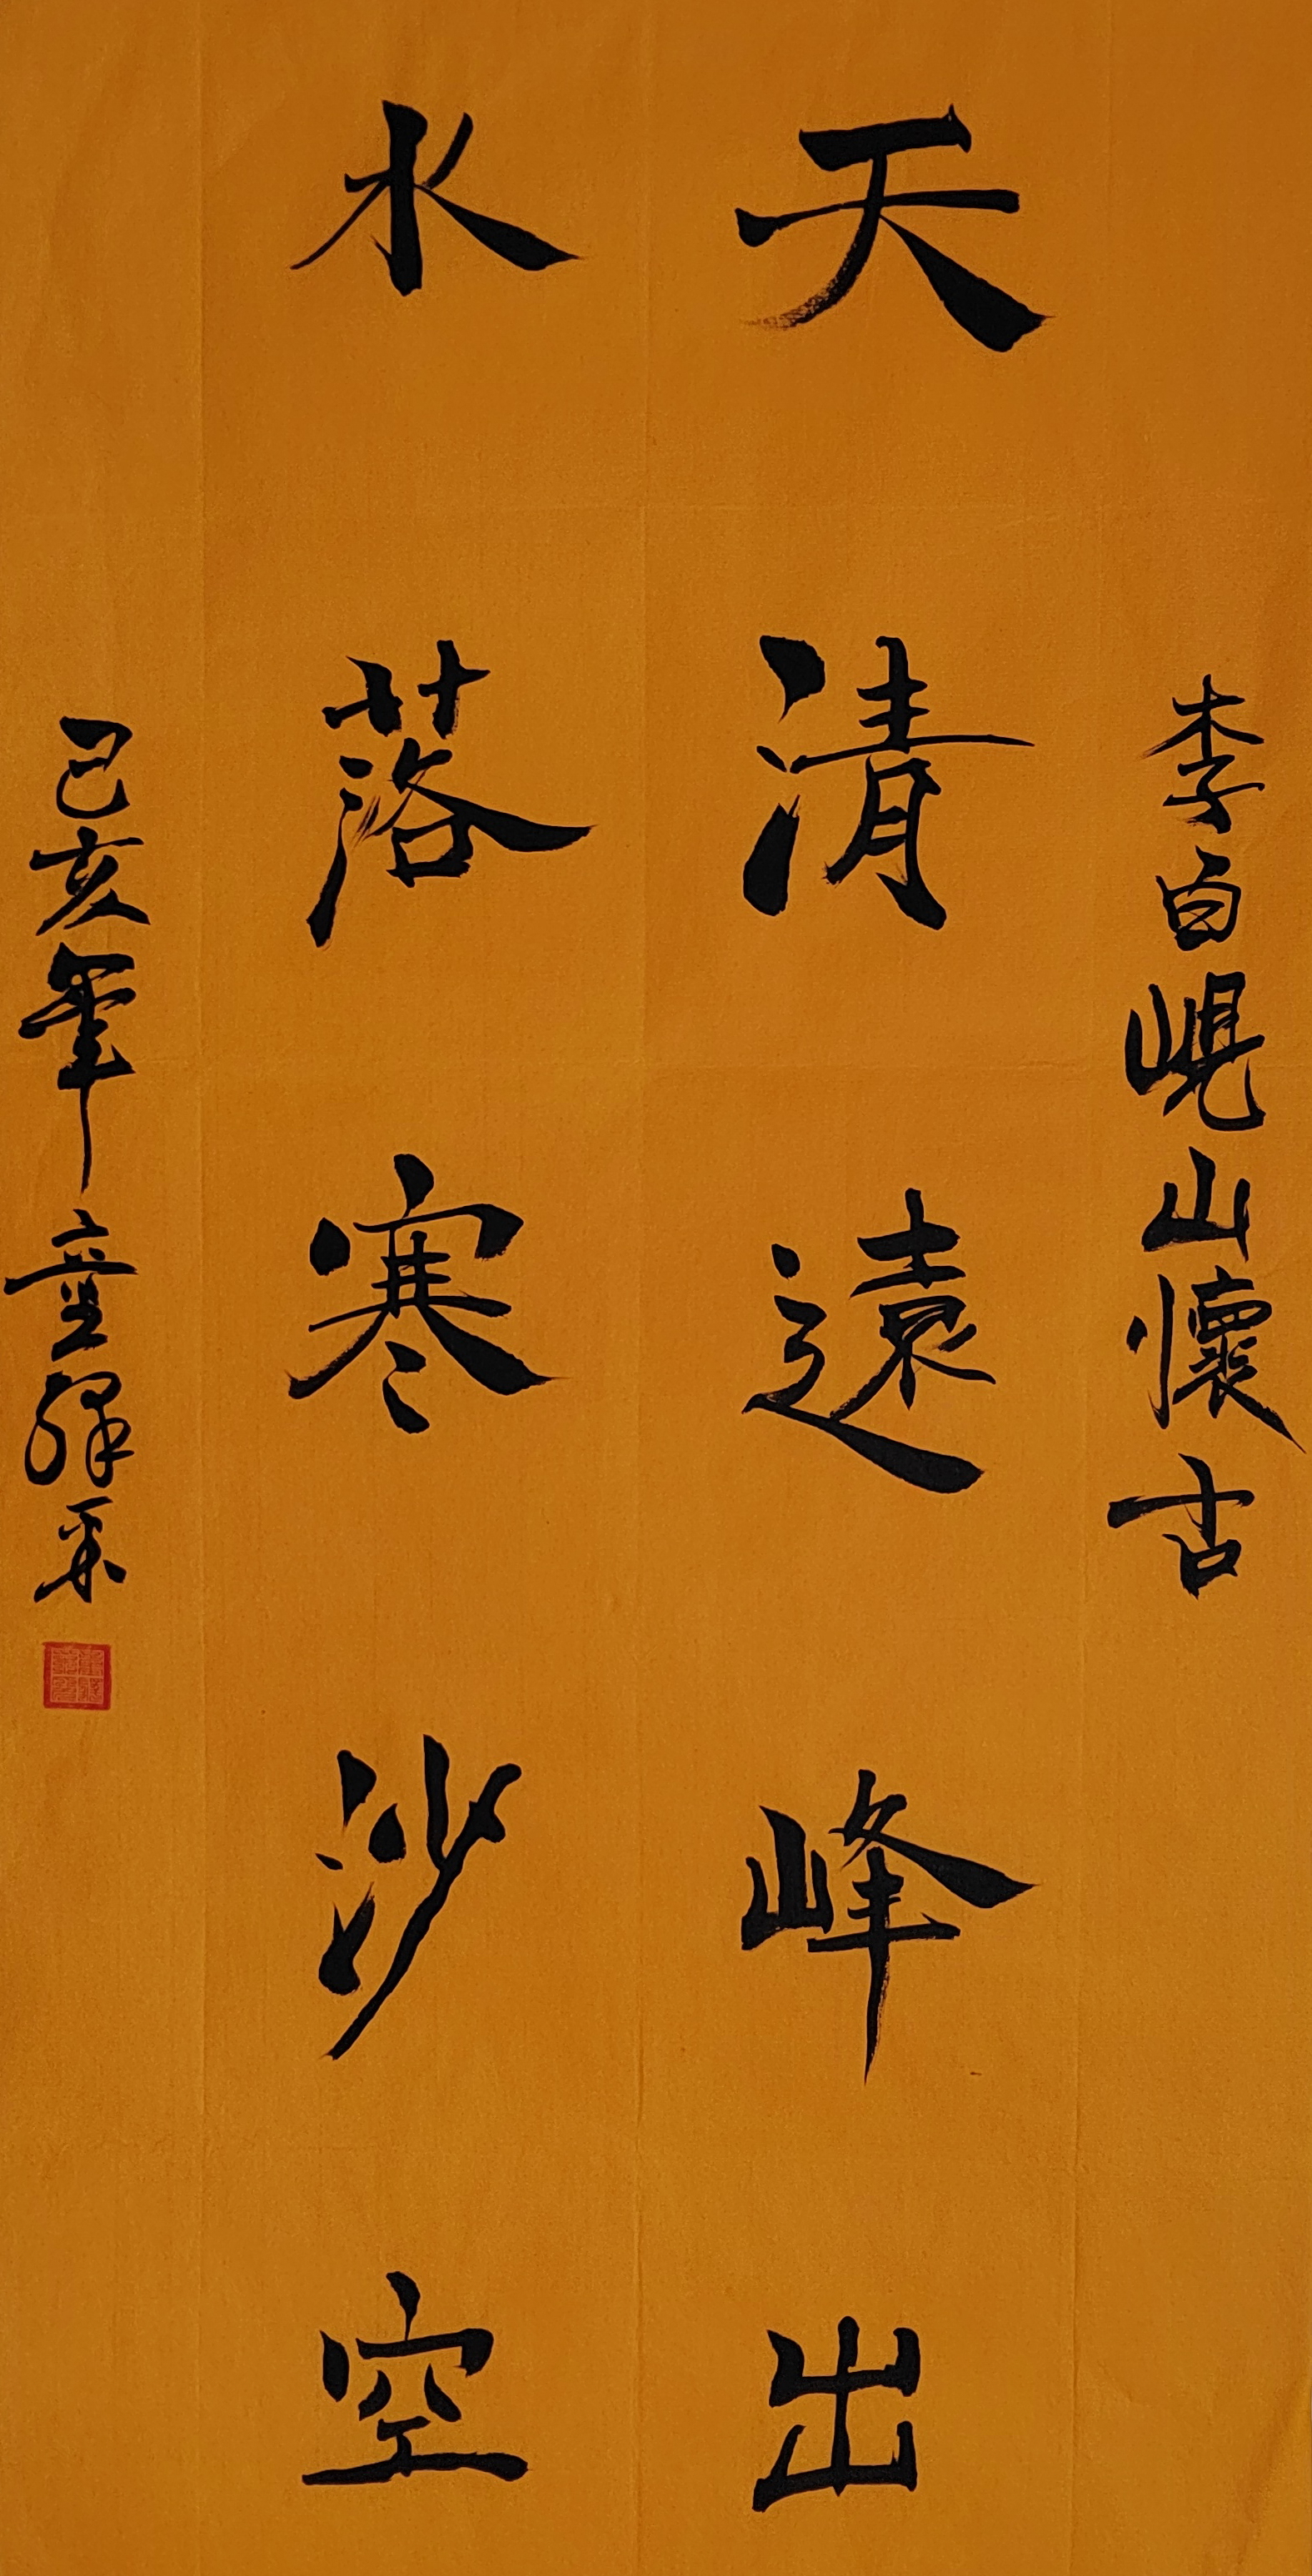 李白峴山懷古
天清遠峰出
水落寒沙空
己亥年